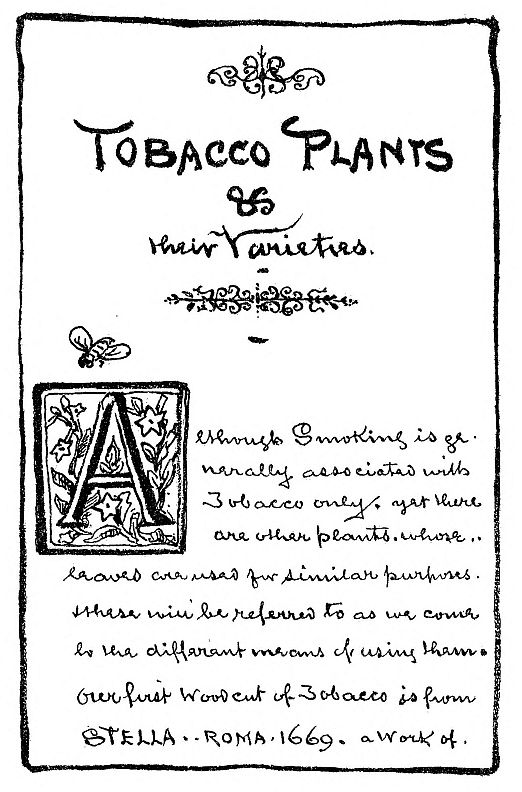 TOBACCO PLANTS
&
their Varieties.
Although Smoking is ge-
nerally associated with
Tobacco only, yet there
are other plants. whose..
leaves are used for similar purposes.
these will be referred to as we come
to the different means of using them.
Our first woodcut of Tobacco is from
STELLA.. ROMA. 1669. a work of.